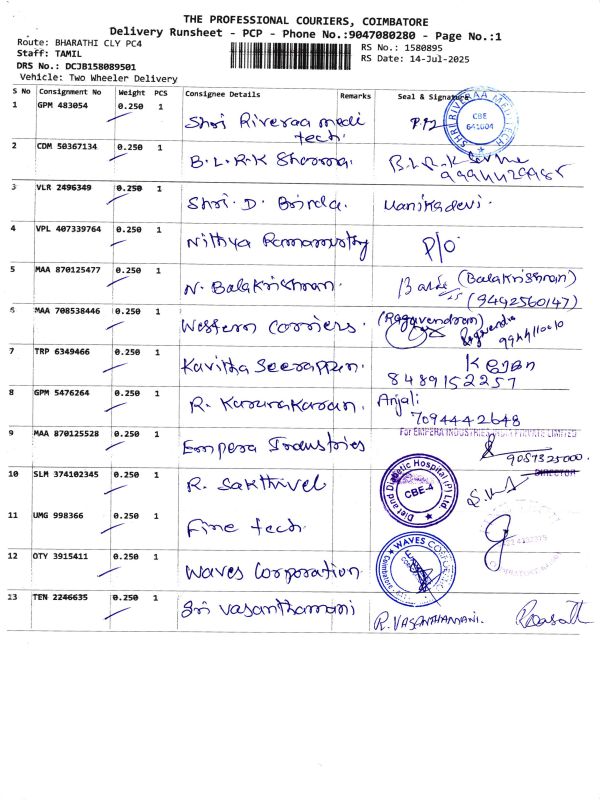 THE PROFESSIONAL COURIERS, COIMBATORE
Delivery Runsheet - PCP - Phone No.:9047080280 - Page No.:1
Route: BHARATHI CLY PC4
RS No.: 1580895
Staff: TAMIL
RS Date: 14-Jul-2025
DRS No.: DCJB158089501
Vehicle: Two Wheeler Delivery
S No Consignment No Weight PCS Consignee Details Remarks Seal & Signature
1 GPM 483054 0.250 1 Shri Riveraa medi tech.
SHRI RIVERAA MEDITECH CBE 641004
2 CDM 50367134 0.250 1 B.L.R.K Sharma. B.L.R.K
3 VLR 2496349 0.250 1 Shri. D. Brinda. Manikadevi.
4 VPL 407339764 0.250 1 Nithya Ramamurthy P/o
5 MAA 870125477 0.250 1 N. Balakrishnan. (Balakrishnan)
(9442560147)
6 MAA 708538446 0.250 1 Western Carriers. (Ragavendran)
7 TRP 6349466 0.250 1 Kavitha Seerappan.
8489152257
8 GPM 5476264 0.250 1 R. Karunakaran. Anjali
7094442648
9 MAA 870125528 0.250 1 Empera Industries
For EMPERA INDUSTRIES INDIA PRIVATE LIMITED
9057325000.
DIRECTOR
10 SLM 374102345 0.250 1 R. Sakthivel
Diet and Diabetic Hospital (P) Ltd. CBE-4
11 UMG 998366 0.250 1 Fine tech.
12 OTY 3915411 0.250 1 Waves Corporation.
WAVES CORPORATION
13 TEN 2246635 0.250 1 Sri Vasanthamani R. VASANTHAMANI.